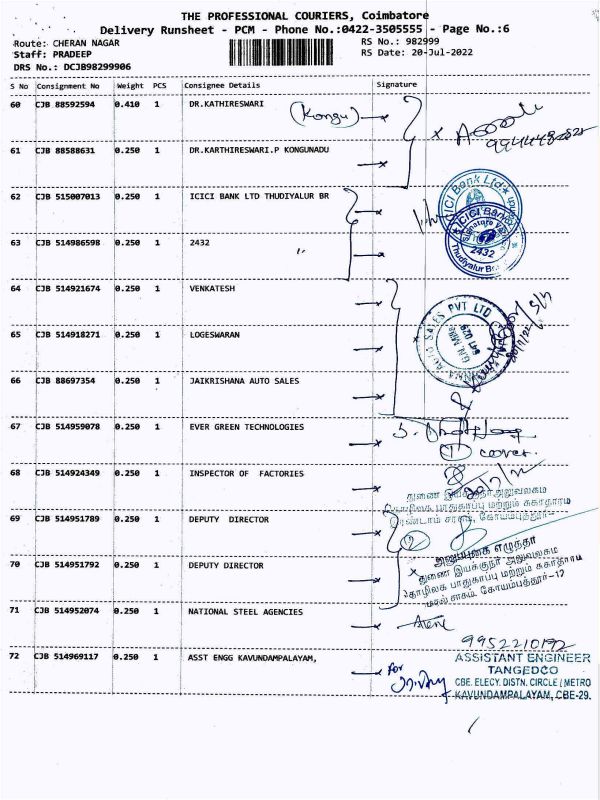 THE PROFESSIONAL COURIERS, Coimbatore
Delivery Runsheet - PCM - Phone No.:0422-3505555 - Page No.:6
Route: CHERAN NAGAR
RS No.: 982999
Staff: PRADEEP
RS Date: 20-Jul-2022
DRS No.: DCJB98299906
S No Consignment No Weight PCS Consignee Details Signature
60 CJB 88592594 0.410 1 DR.KATHIRESWARI
(Kongu)
61 CJB 88588631 0.250 1 DR.KARTHIRESWARI.P KONGUNADU
62 CJB 515007013 0.250 1 ICICI BANK LTD THUDIYALUR BR
ICICI Bank Ltd.
ICICI Bank
2432
Thudiyalur Br
63 CJB 514986598 0.250 1 2432 "
64 CJB 514921674 0.250 1 VENKATESH
AUTO SALES PVT LTD
641 029
65 CJB 514918271 0.250 1 LOGESWARAN
66 CJB 88697354 0.250 1 JAIKRISHANA AUTO SALES
67 CJB 514959078 0.250 1 EVER GREEN TECHNOLOGIES
① cover.
68 CJB 514924349 0.250 1 INSPECTOR OF FACTORIES
துணை இயக்குநர் அலுவலகம
தொழிலக பாதுகாப்பு மற்றும் சுகாதாரம
இரண்டாம் சரகம், கோயம்புத்தூர்-
69 CJB 514951789 0.250 1 DEPUTY DIRECTOR
②
துணை இயக்குநர் அலுவலகம
70 CJB 514951792 0.250 1 DEPUTY DIRECTOR
தொழிலக பாதுகாப்பு மற்றும் சுகாதாரம
சரகம், கோயம்பத்தூர்-
71 CJB 514952074 0.250 1 NATIONAL STEEL AGENCIES
9952210192
72 CJB 514969117 0.250 1 ASST ENGG KAVUNDAMPALAYAM,
for
ASSISTANT ENGINEER
TANGEDCO
CBE. ELECY. DISTN. CIRCLE / METRO
KAVUNDAMPALAYAM, CBE-29.